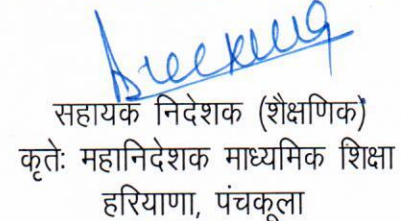 सहायक निदेशक (शैक्षणिक)
कृतेः महानिदेशक माध्यमिक शिक्षा
हरियाणा, पंचकूला